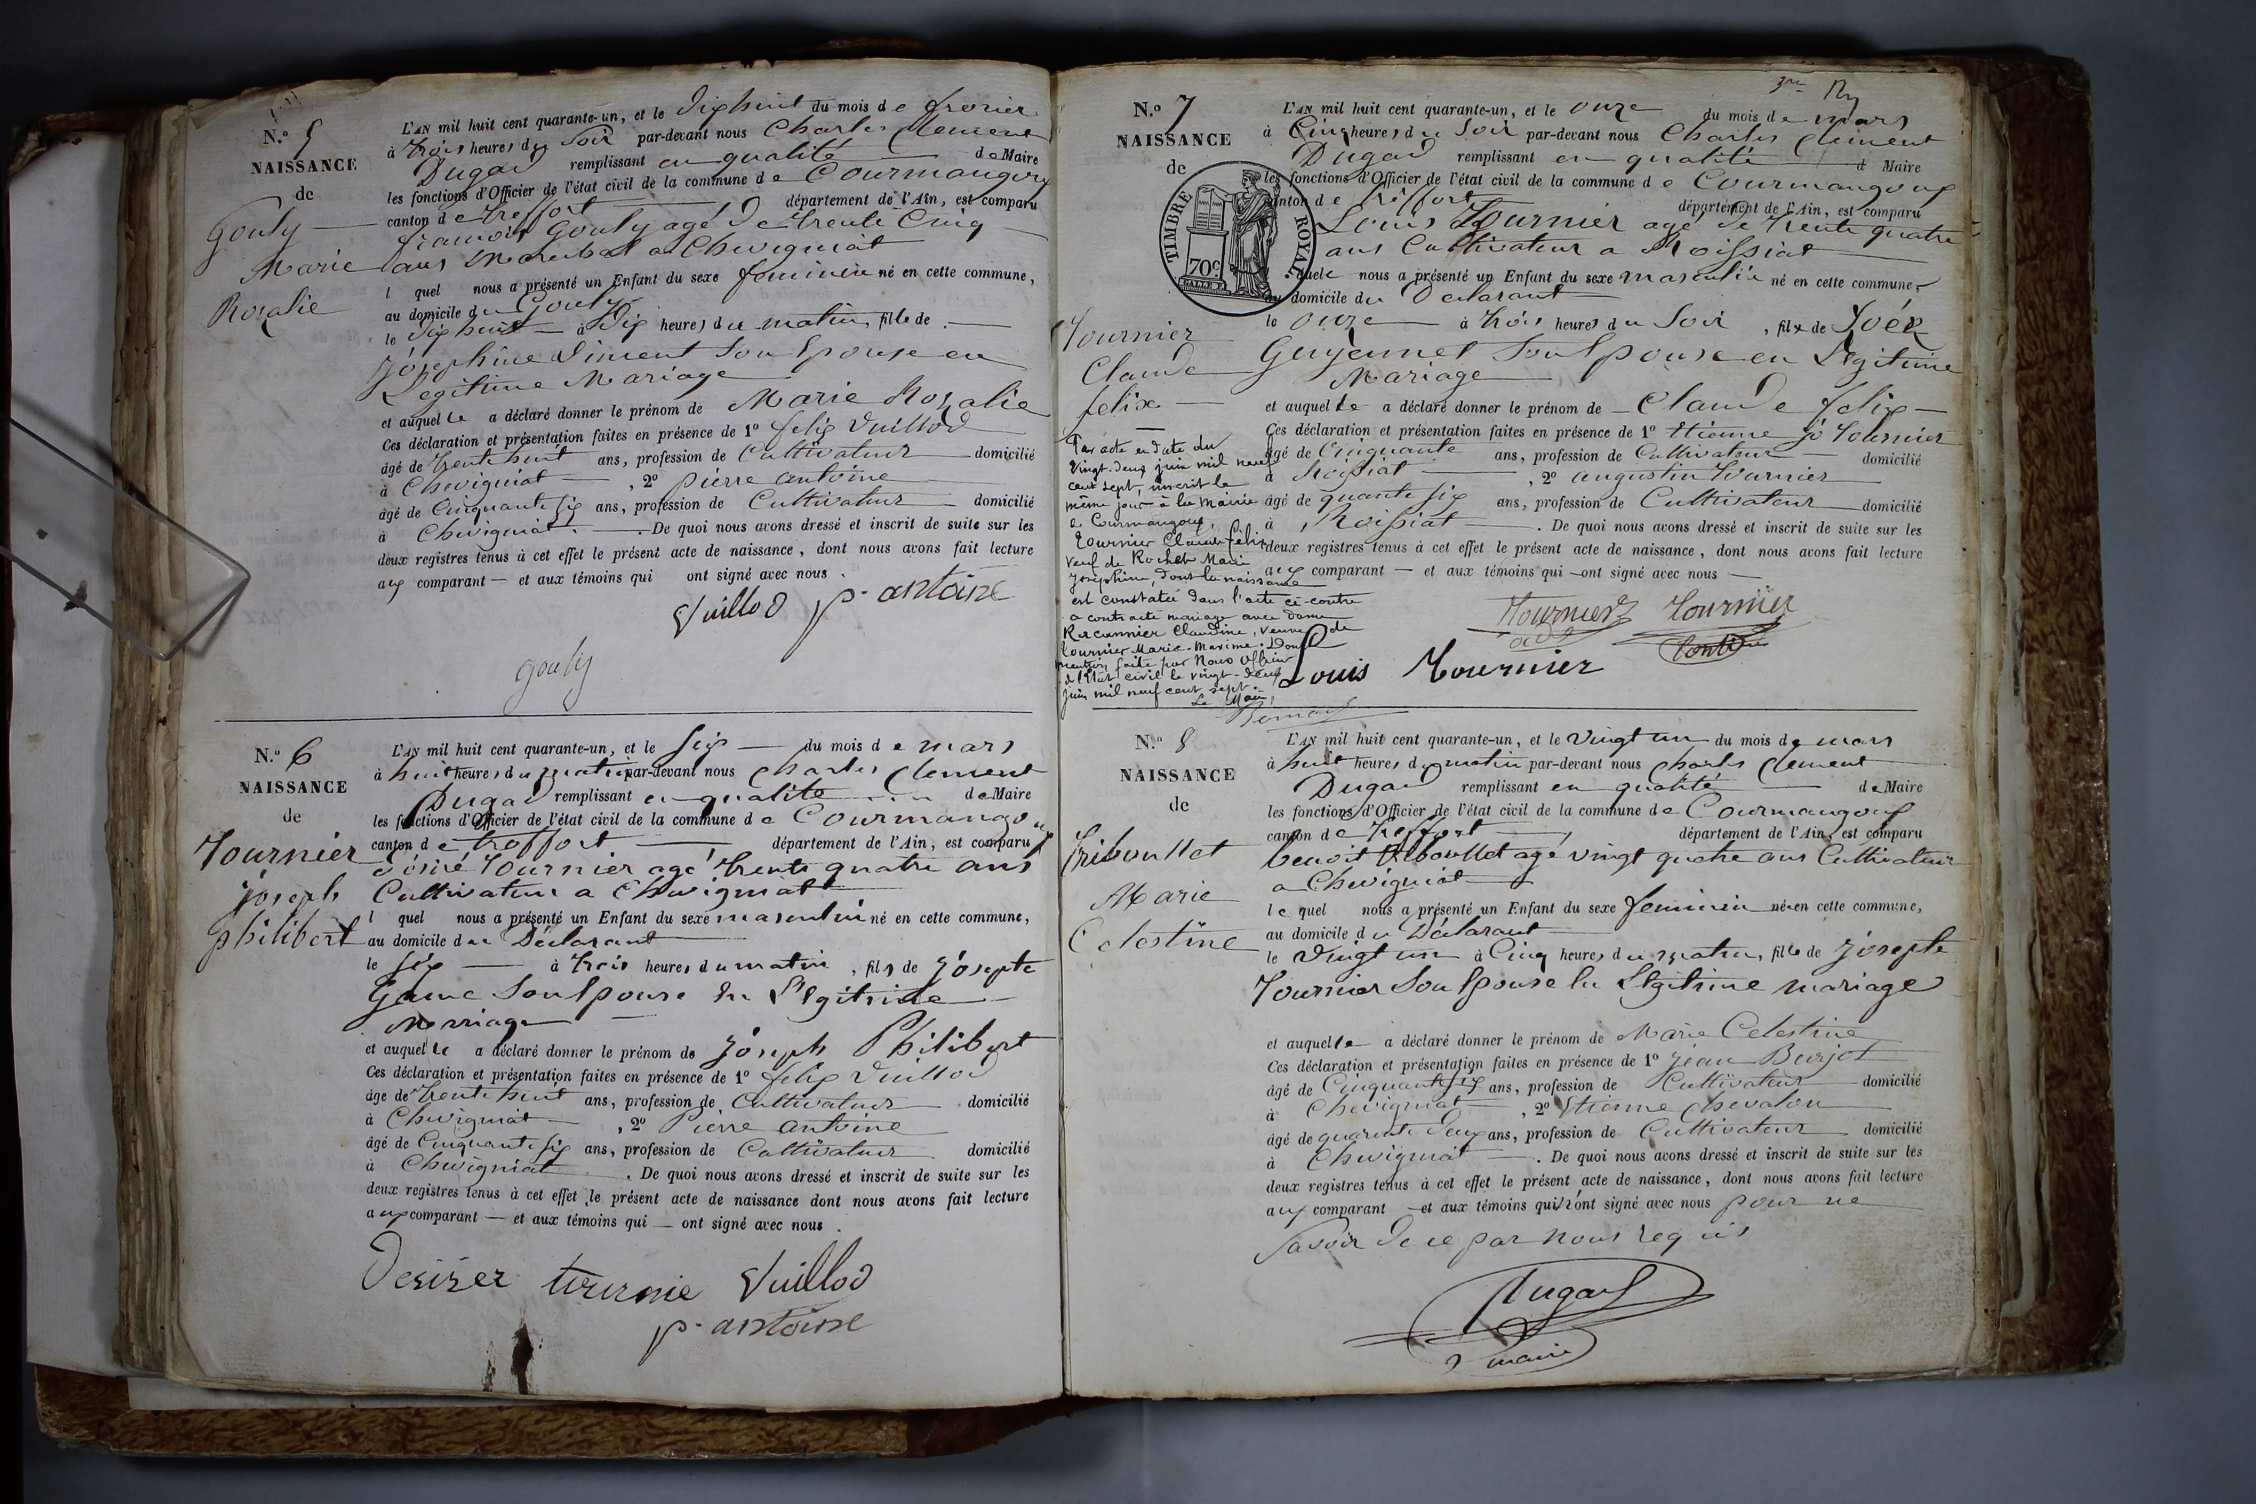 N.º 5
NAISSANCE
de
Gouly
Marie
Rosalie
L'AN mil huit cent quarante-un, et le Dix huit du mois de fevrier
à trois heures du Soir par-devant nous Charles Clement
Dugad remplissant en qualité de Maire
les fonctions d'Officier de l'état civil de la commune de Courmangoux
canton de treffort département de l'Ain, est comparu
francois Gouly agé de trente Cinq
ans Marechal a Chevigniat
l quel nous a présenté un Enfant du sexe feminin né en cette commune,
au domicile du Gouly
le Dix huit à Dix heures du matin, fille de
Joséphine Piment Son Epouse en
Legitime Mariage
et auquel le a déclaré donner le prénom de Marie Rosalie
Ces déclaration et présentation faites en présence de 1º felix Vuillod
âgé de trente huit ans, profession de Cultivateur domicilié
à Chevigniat, 2º pierre antoine
âgé de Cinquante six ans, profession de Cultivateur domicilié
à Chevigniat. De quoi nous avons dressé et inscrit de suite sur les
deux registres tenus à cet effet le présent acte de naissance, dont nous avons fait lecture
aux comparant — et aux témoins qui ont signé avec nous.
Vuillod p. antoine
gouly
N.º 6
NAISSANCE
de
Tournier
Joseph
philibert
L'AN mil huit cent quarante-un, et le six du mois de mars
à huit heures du matin par-devant nous Charles Clement
Dugad remplissant en qualité de Maire
les fonctions d'Officier de l'état civil de la commune de Courmangoux
canton de treffort département de l'Ain, est comparu
Désiré Tournier agé trente quatre ans
Cultivateur a Chevigniat
l quel nous a présenté un Enfant du sexe masculin né en cette commune,
au domicile du Déclarant
le six à trois heures du matin, fils de Josepte
Son Epouse En Legitime
Mariage
et auquel le a déclaré donner le prénom de Joseph Philibert
Ces déclaration et présentation faites en présence de 1º felix Vuillod
âgé de trente huit ans, profession de Cultivateur domicilié
à Chevigniat, 2º Pierre antoine
âgé de Cinquante six ans, profession de Cultivateur domicilié
à Chevigniat. De quoi nous avons dressé et inscrit de suite sur les
deux registres tenus à cet effet le présent acte de naissance dont nous avons fait lecture
aux comparant — et aux témoins qui — ont signé avec nous.
Desirer tournie Vuillod
p. antoine
N.º 7
NAISSANCE
de
TIMBRE ROYAL
70c
Tournier
Claude
felix
Par acte en date du
vingt-deux juin mil neuf
cent sept, inscrit le
même jour à la Mairie
de Courmangoux,
Tournier Claude Félix
veuf de Rochet Marie
Joséphine, dont la naissance
est constatée dans l'acte ci-contre
a contracté mariage avec dame
Claudine, veuve de
Tournier Marie-Maxime. Dont
mention faite par Nous Officier
de l'Etat civil le vingt-deux
juin mil neuf cent sept.
Le Maire,
L'AN mil huit cent quarante-un, et le onze du mois de mars
à Cinq heures du Soir par-devant nous Charles Clement
Dugad remplissant en qualité d Maire
les fonctions d'Officier de l'état civil de la commune de Courmangoux
canton de treffort département de l'Ain, est comparu
Louis Tournier agé de trente quatre
ans Cultivateur a Roissiat
quel nous a présenté un Enfant du sexe masculin né en cette commune,
au domicile du Declarant
le onze à trois heures du Soir, fils de
Guyennet Son Epouse en Legitime
Mariage
et auquel le a déclaré donner le prénom de Claude felix
Ces déclaration et présentation faites en présence de 1º Etienne jh Tournier
âgé de Cinquante ans, profession de Cultivateur domicilié
à Roissiat, 2º augustin Tournier
âgé de quante six ans, profession de Cultivateur domicilié
à Roissiat. De quoi nous avons dressé et inscrit de suite sur les
deux registres tenus à cet effet le présent acte de naissance, dont nous avons fait lecture
aux comparant — et aux témoins qui — ont signé avec nous
Tournier Tournier
Louis Tournier
N.º 8
NAISSANCE
de
Triboullet
Marie
Celestine
L'AN mil huit cent quarante-un, et le vingt un du mois de mars
à huit heures du matin par-devant nous Charles Clement
Dugad remplissant en qualité de Maire
les fonctions d'Officier de l'état civil de la commune de Courmangoux
canton de treffort, département de l'Ain, est comparu
benoit triboullet agé vingt quatre ans Cultivateur
a Chevigniat
le quel nous a présenté un Enfant du sexe feminin né en cette commune,
au domicile du Déclarant
le vingt un à Cinq heures du matin, fille de josepte
Tournier Son Epouse En Legitime mariage
et auquel le a déclaré donner le prénom de Marie Celestine
Ces déclaration et présentation faites en présence de 1º jean Burjot
âgé de Cinquante six ans, profession de Cultivateur domicilié
à Chevigniat, 2º Etienne Chevalon
âgé de quarente deux ans, profession de Cultivateur domicilié
à Chevigniat. De quoi nous avons dressé et inscrit de suite sur les
deux registres tenus à cet effet le présent acte de naissance, dont nous avons fait lecture
aux comparant — et aux témoins qui n'ont signé avec nous pour ne
Savoir de ce par nous requis
Dugad
maire